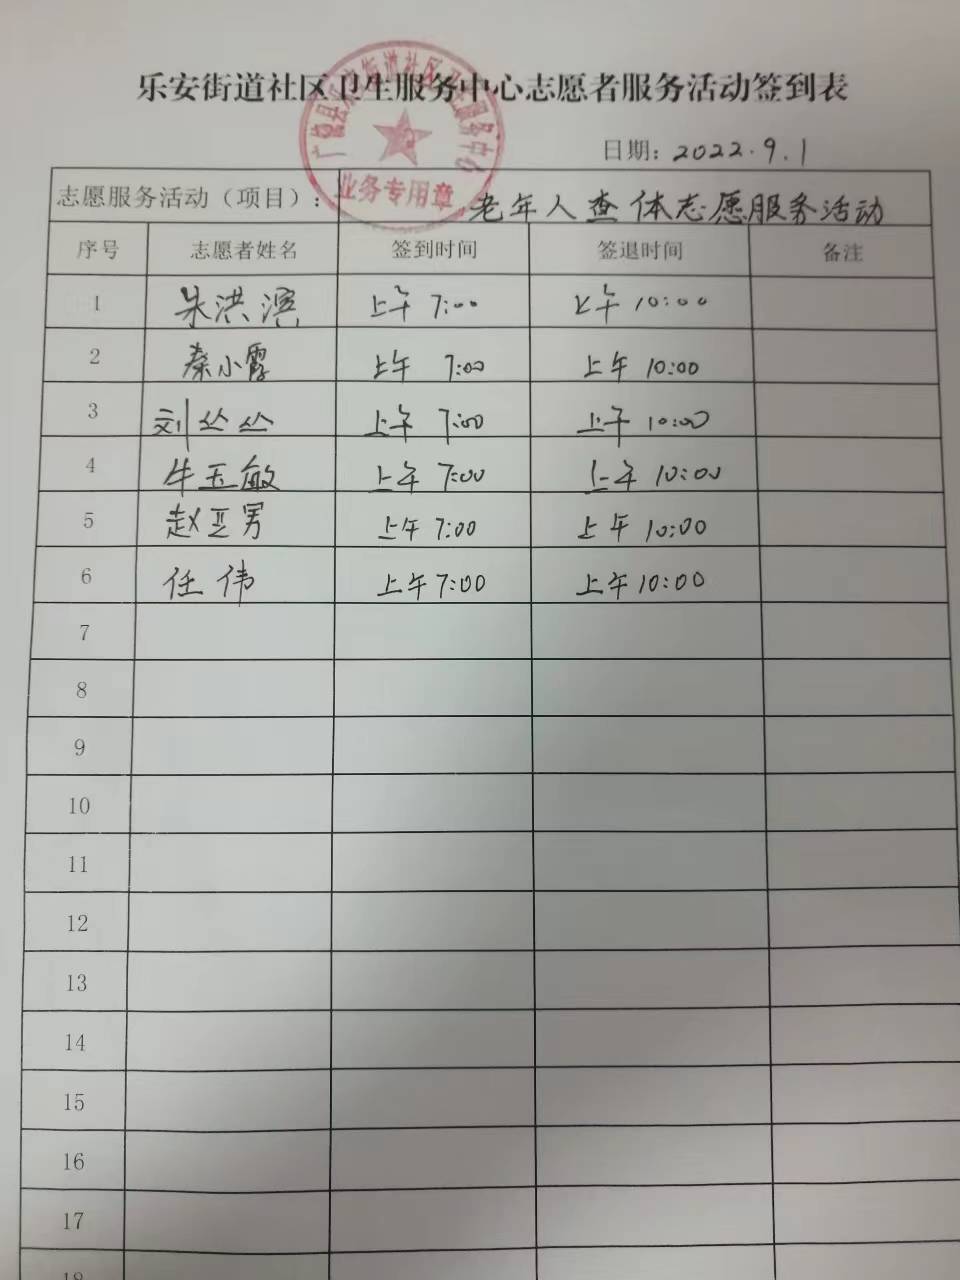 乐安街道社区卫生服务中心志愿者服务活动签到表
广饶县乐安街道社区卫生服务中心
业务专用章
日期：2022.9.1
志愿服务活动（项目）： 老年人查体志愿服务活动
序号 志愿者姓名 签到时间 签退时间 备注
1 朱洪滨 上午 7:00 上午 10:00
2 秦小霞 上午 7:00 上午 10:00
3 刘丛丛 上午 7:00 上午 10:00
4 牛玉敏 上午 7:00 上午 10:00
5 赵亚男 上午 7:00 上午 10:00
6 任伟 上午 7:00 上午 10:00
7
8
9
10
11
12
13
14
15
16
17
18